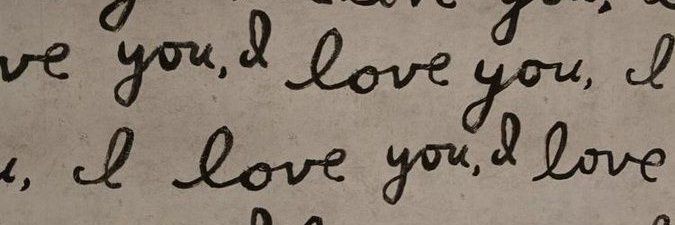 ve you, I love you, I
u, I love you, I love